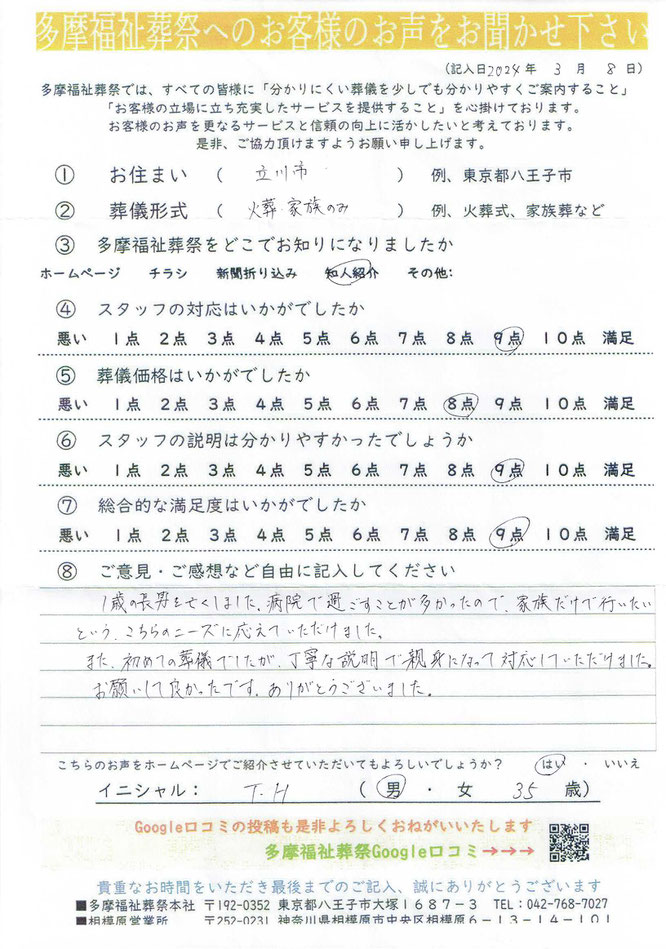 多摩福祉葬祭へのお客様のお声をお聞かせ下さい
(記入日2024年 3月 8日)
多摩福祉葬祭では、すべての皆様に「分かりにくい葬儀を少しでも分かりやすくご案内すること」
「お客様の立場に立ち充実したサービスを提供すること」を心掛けております。
お客様のお声を更なるサービスと信頼の向上に活かしたいと考えております。
是非、ご協力頂けますようお願い申し上げます。
① お住まい ( 立川市 ) 例、東京都八王子市
② 葬儀形式 ( 火葬・家族のみ ) 例、火葬式、家族葬など
③ 多摩福祉葬祭をどこでお知りになりましたか
ホームページ チラシ 新聞折り込み 知人紹介 その他:
④ スタッフの対応はいかがでしたか
悪い 1点 2点 3点 4点 5点 6点 7点 8点 9点 10点 満足
⑤ 葬儀価格はいかがでしたか
悪い 1点 2点 3点 4点 5点 6点 7点 8点 9点 10点 満足
⑥ スタッフの説明は分かりやすかったでしょうか
悪い 1点 2点 3点 4点 5点 6点 7点 8点 9点 10点 満足
⑦ 総合的な満足度はいかがでしたか
悪い 1点 2点 3点 4点 5点 6点 7点 8点 9点 10点 満足
⑧ ご意見・ご感想など自由に記入してください
1歳の長男を亡くしました。病院で過ごすことが多かったので、家族だけで行いたい
という、こちらのニーズに応えていただけました。
また、初めての葬儀でしたが、丁寧な説明で親身になって対応していただけました。
お願いして良かったです。ありがとうございました。
こちらのお声をホームページでご紹介させていただいてもよろしいでしょうか? はい ・ いいえ
イニシャル: T.H ( 男 ・ 女 35 歳)
Google口コミの投稿も是非よろしくおねがいいたします
多摩福祉葬祭Google口コミ→→→
貴重なお時間をいただき最後までのご記入、誠にありがとうございます
■多摩福祉葬祭本社 〒192-0352 東京都八王子市大塚1687-3 TEL:042-768-7027
■相模原営業所 〒252-0231 神奈川県相模原市中央区相模原6-13-14-101